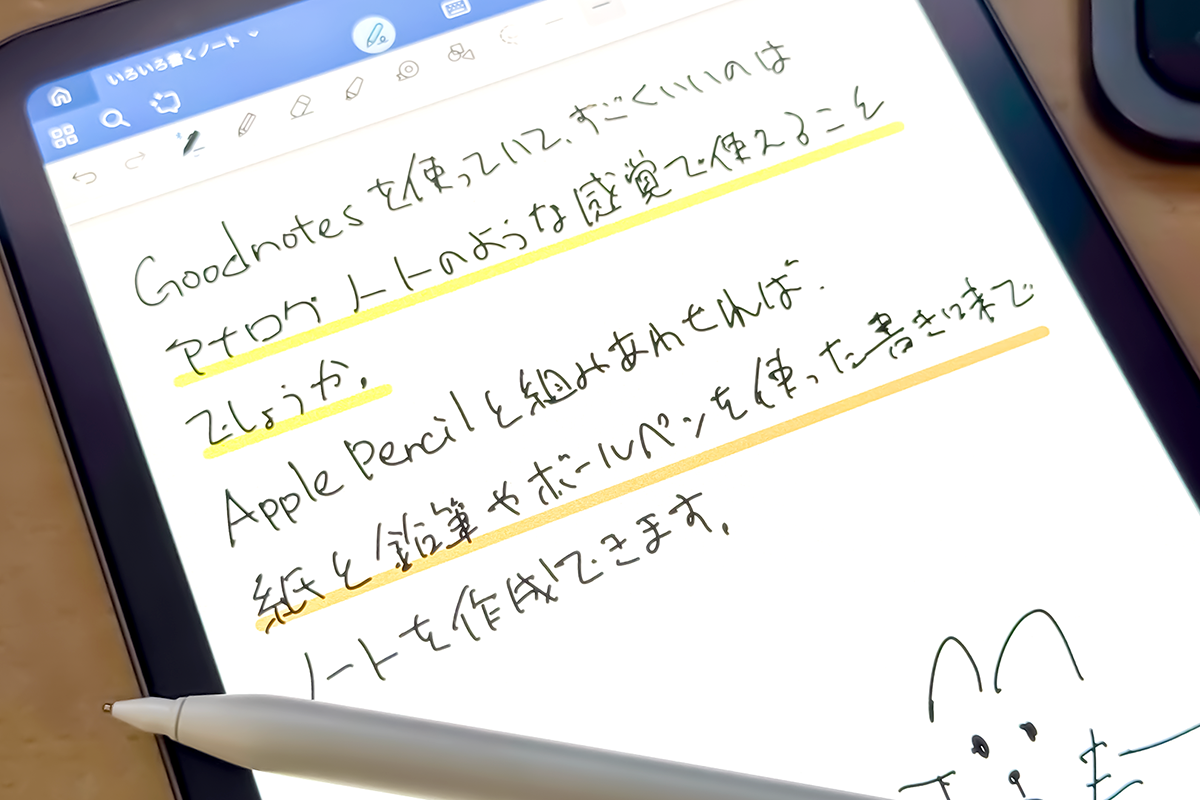 いろいろ書くノート
Goodnotesを使っていて、すごくいいのは
アナログノートのような感覚で使えること
でしょうか。
Apple Pencilと組みあわせれば、
紙と鉛筆やボールペンを使った書き味で
ノートを作成できます。